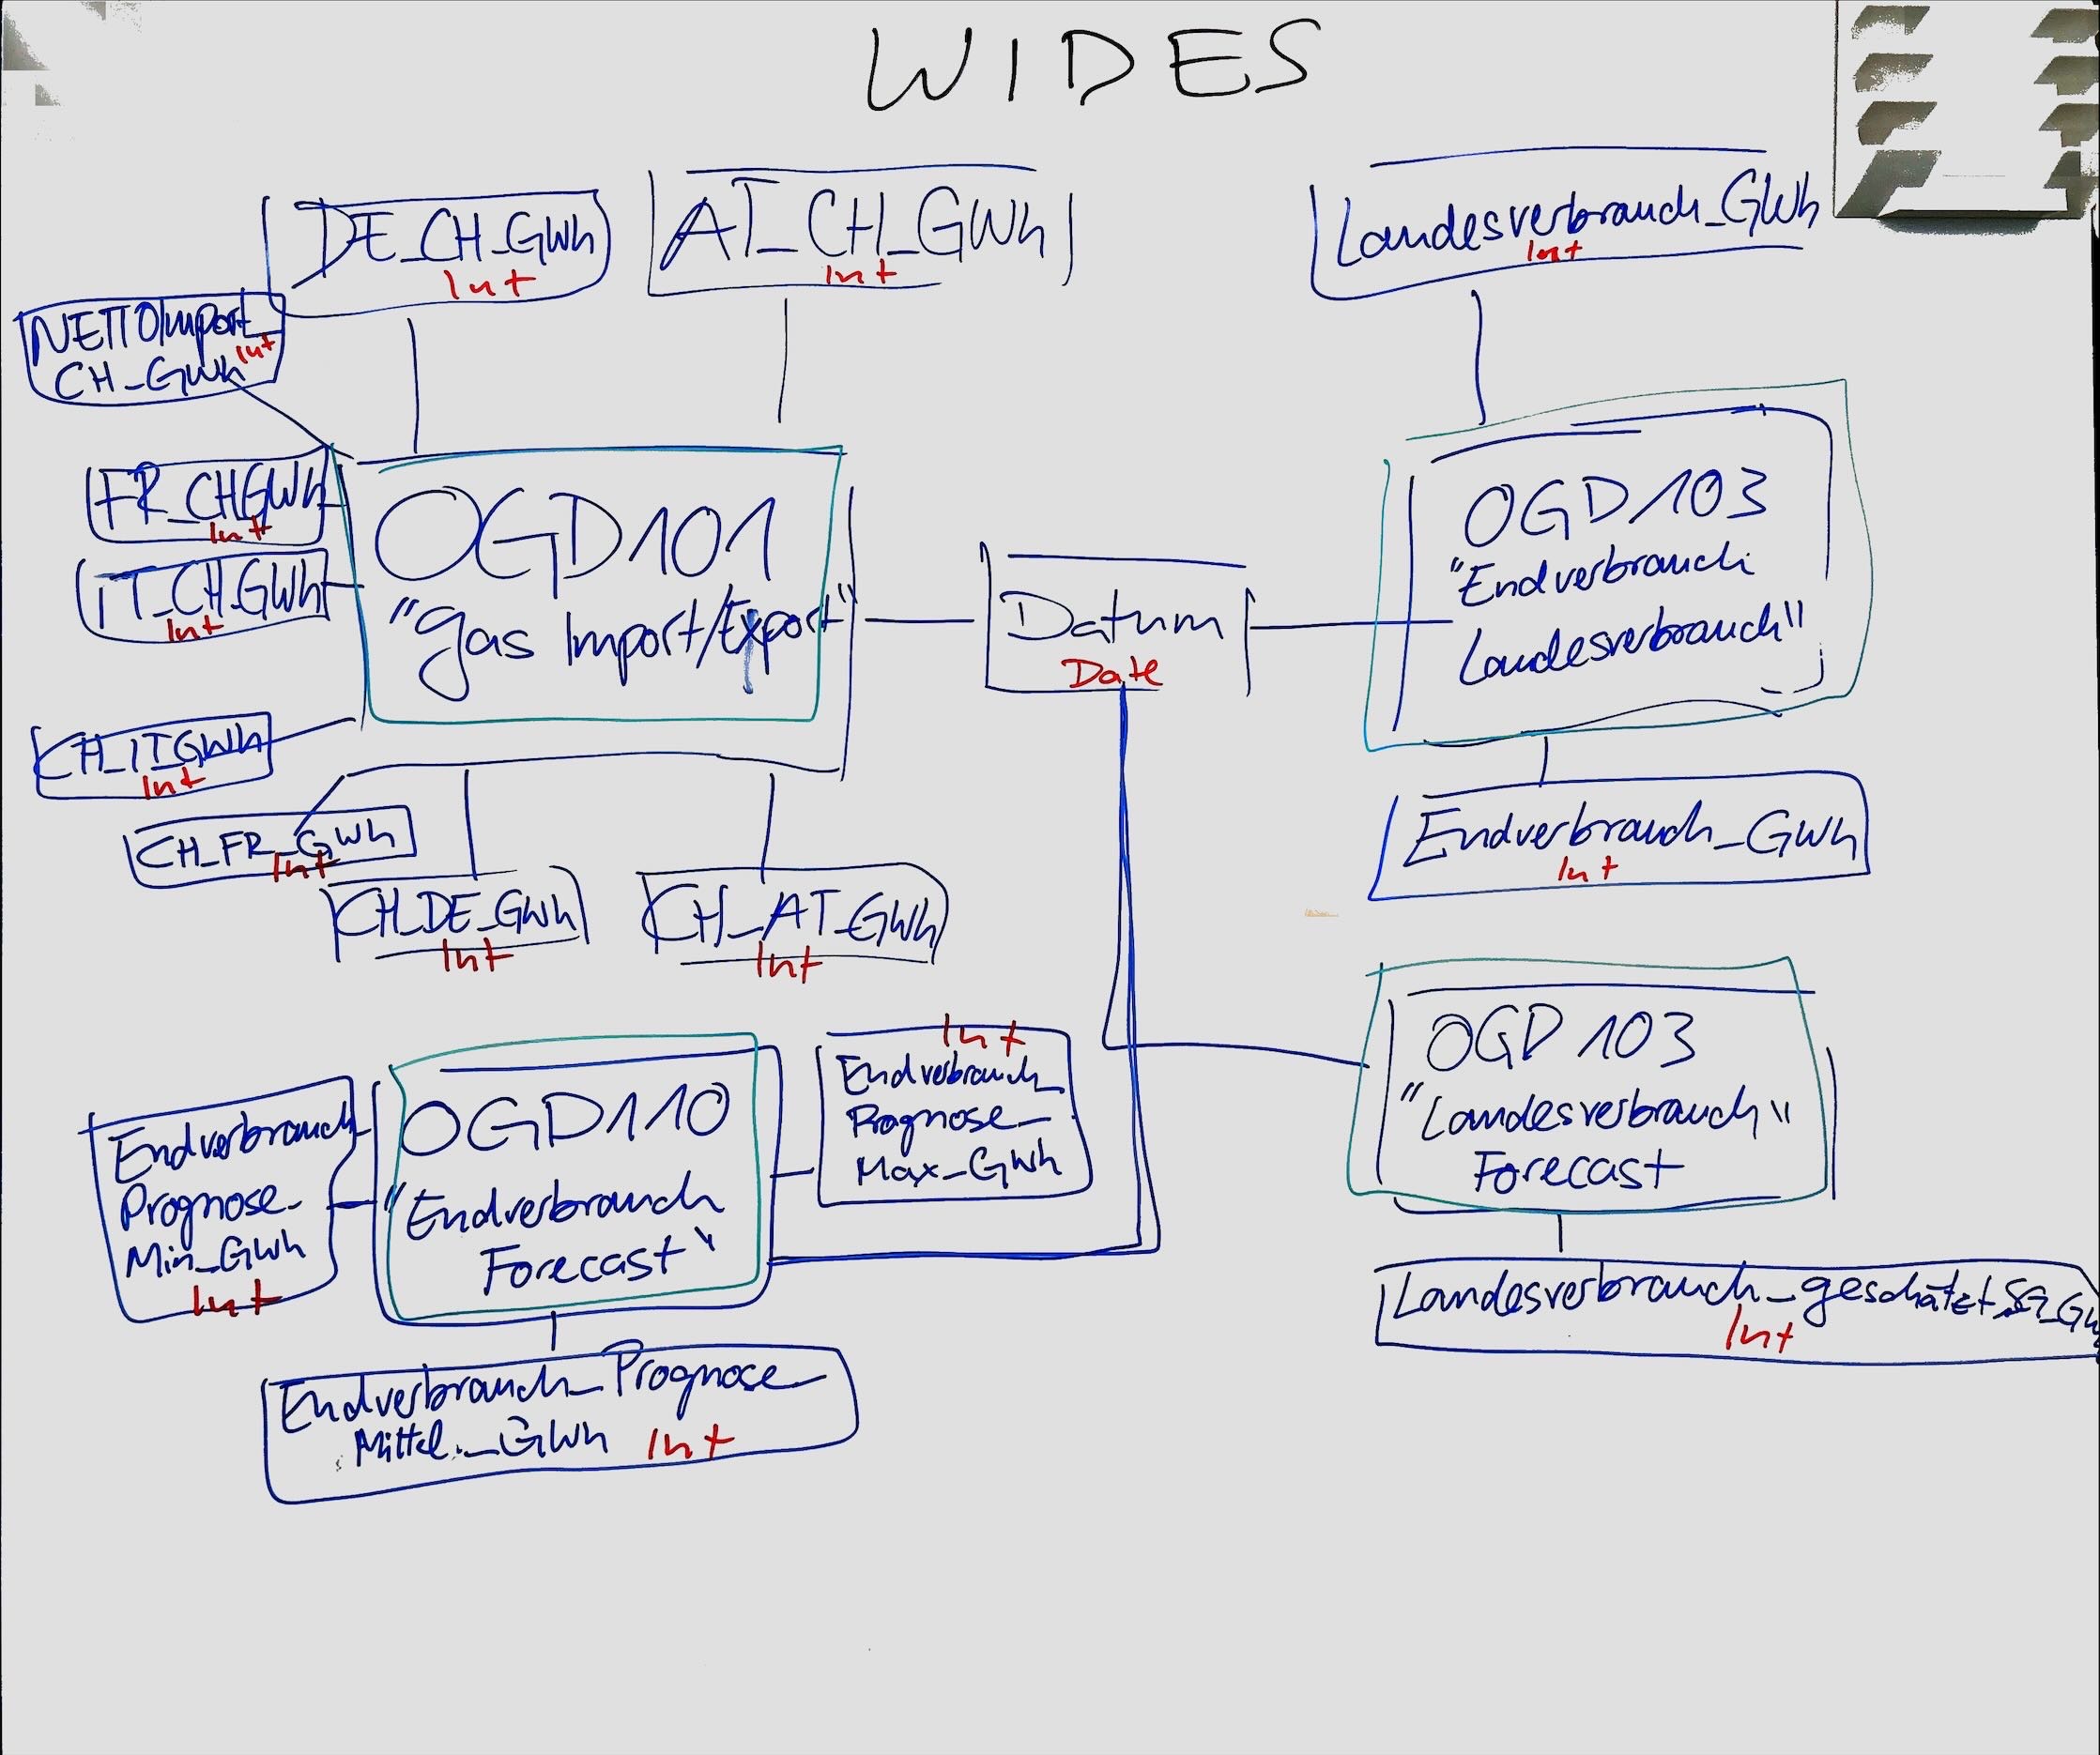 WIDES
DE_CH_GWh
Int
AT_CH_GWh
Int
Landesverbrauch_GWh
Int
NETTOImport_
CH_GWh
Int
FR_CHGWh
Int
IT_CH_GWh
Int
OGD101
"gas Import/Export"
Datum
Date
OGD103
"Endverbrauch
Landesverbrauch"
CH_ITGWh
Int
CH_FR_GWh
Int
CH_DE_GWh
Int
CH_AT_GWh
Int
Endverbrauch_GWh
Int
Endverbrauch
Prognose_
Min_GWh
Int
OGD110
"Endverbrauch
Forecast"
Int
Endverbrauch_
Prognose_
Max_GWh
OGD 103
"Landesverbrauch"
Forecast
Landesverbrauch_geschätzt_
Int
Endverbrauch_Prognose_
Mittel_GWh Int